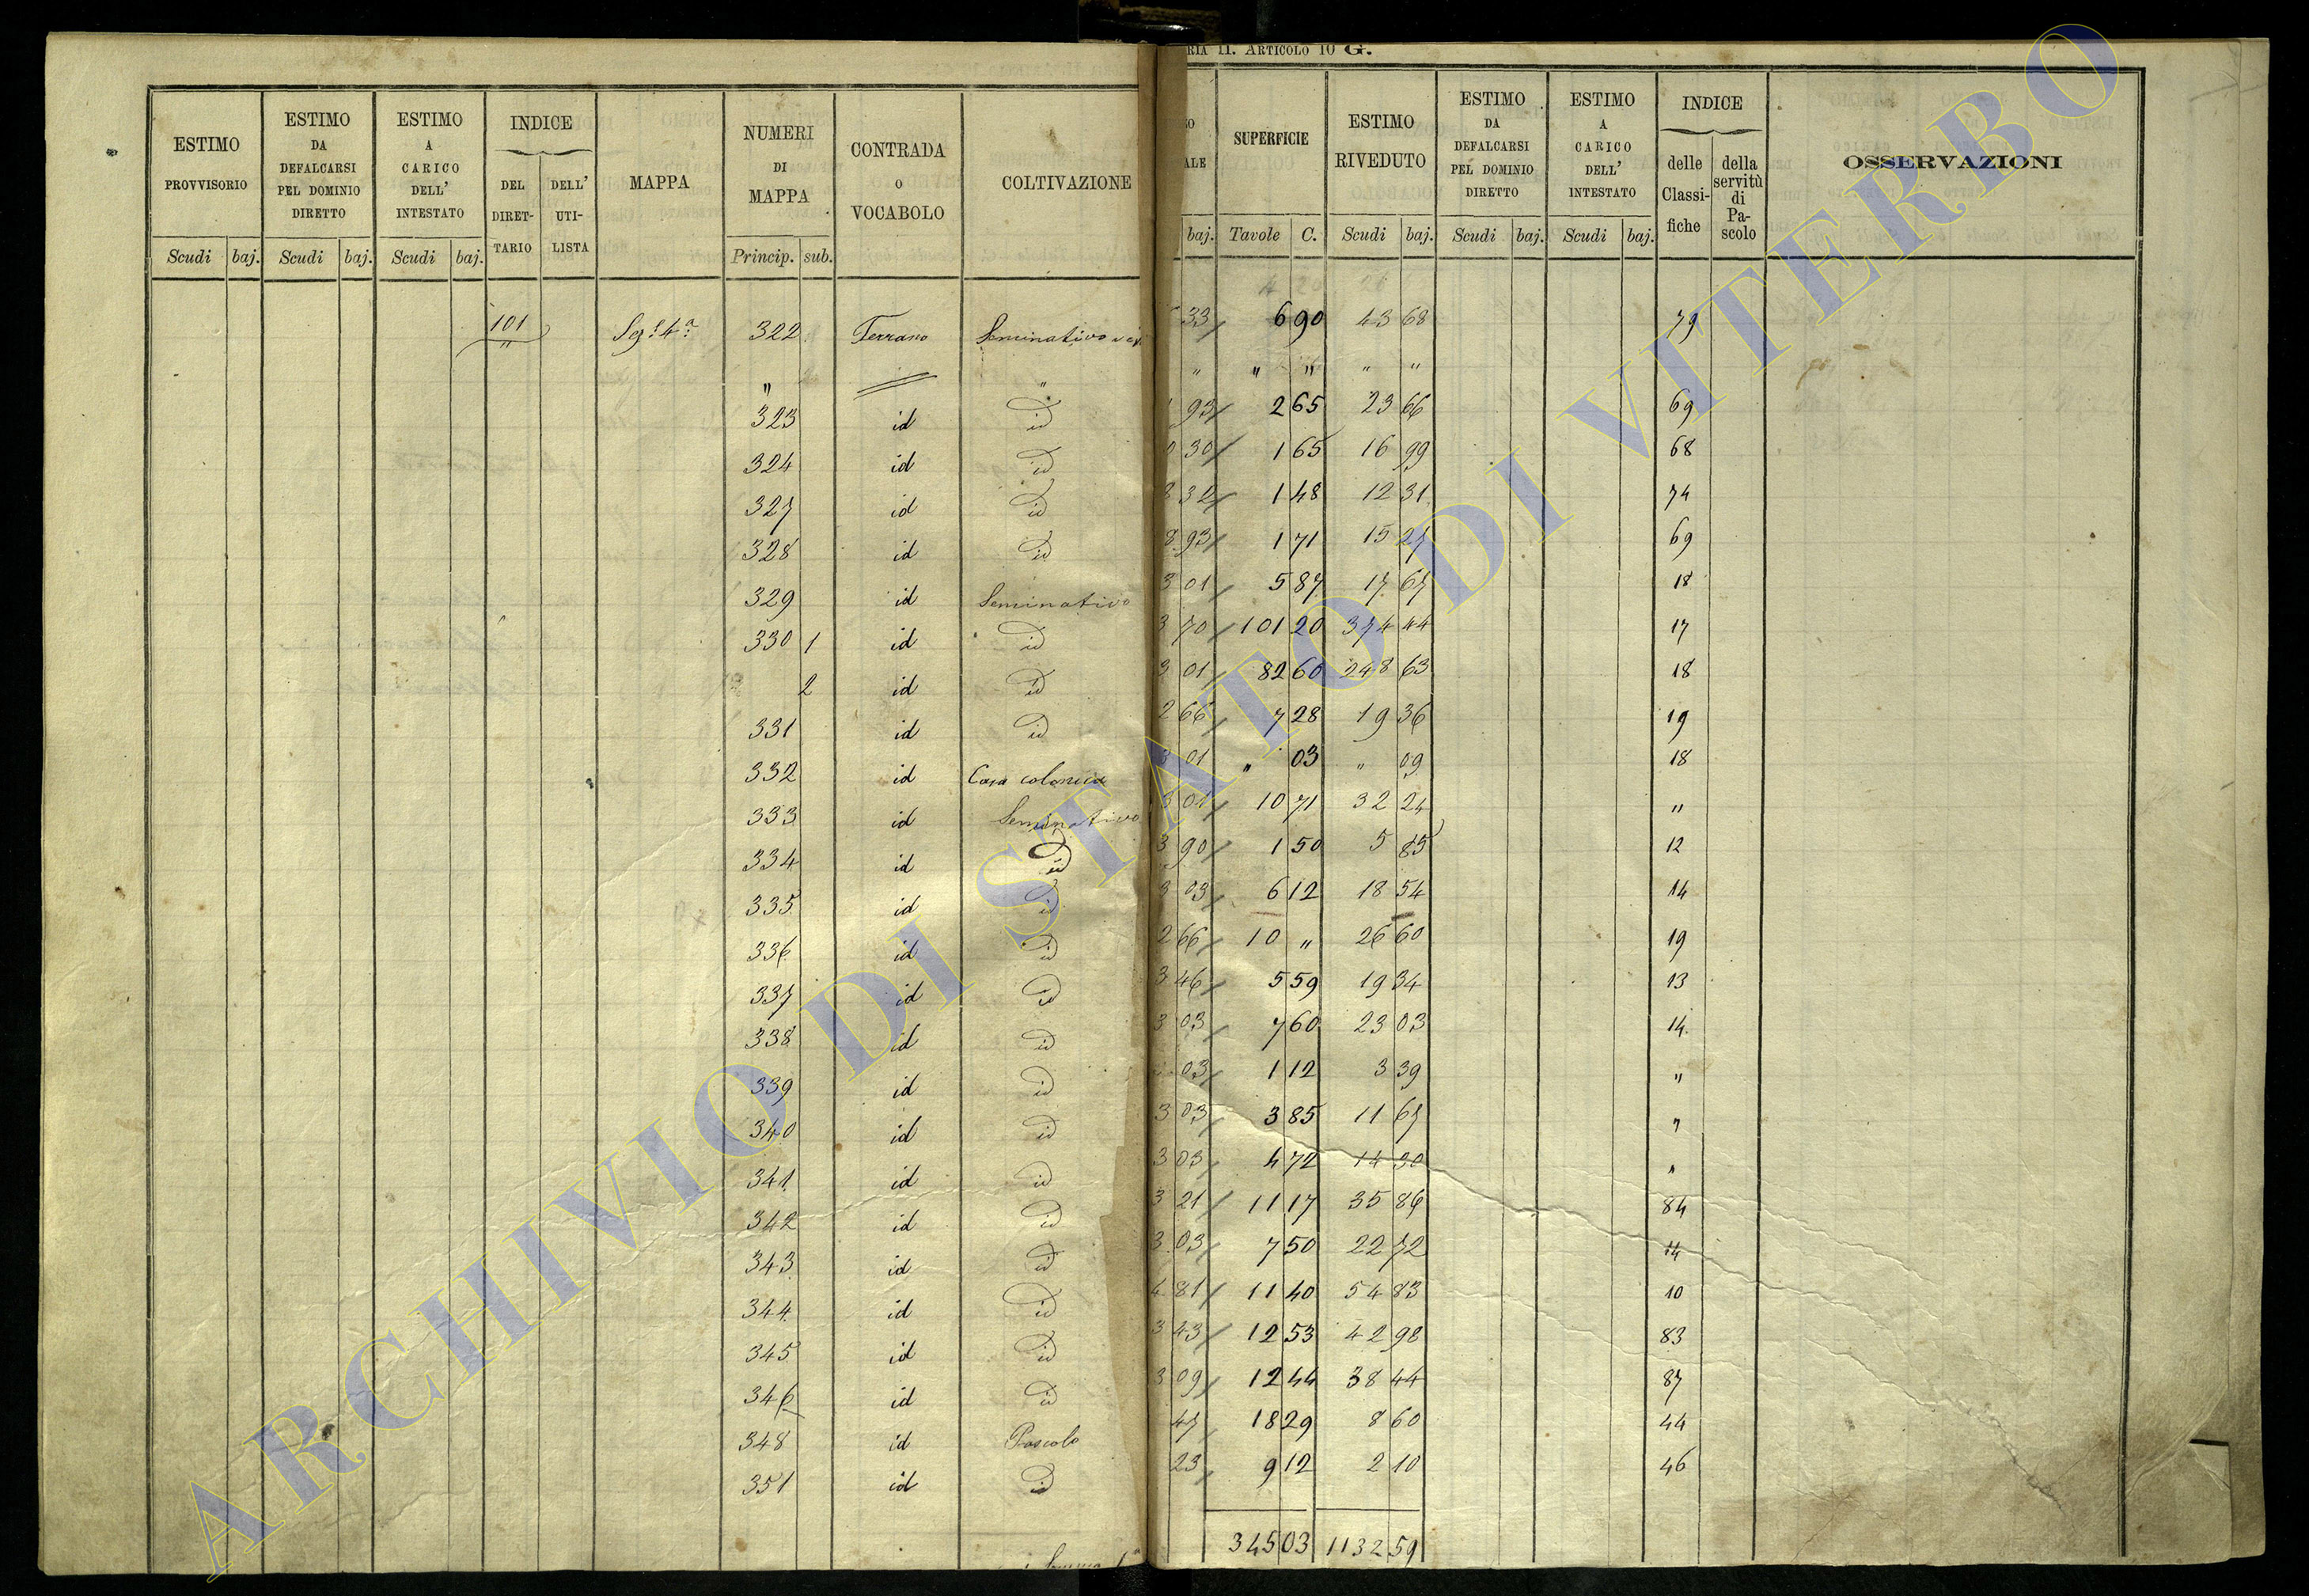 ESTIMO PROVVISORIO Scudi baj.
ESTIMO DA DEFALCARSI PEL DOMINIO DIRETTO Scudi baj.
ESTIMO A CARICO DELL' INTESTATO Scudi baj.
INDICE DEL DIRET-TARIO DELL' UTI-LISTA
MAPPA
NUMERI DI MAPPA Princip. sub.
CONTRADA O VOCABOLO
COLTIVAZIONE
101 322 Terrano Seminativo
" "
323 id id
324 id id
327 id id
328 id id
329 id Seminativo
330 1 id id
2 id id
331 id id
332 id Casa colonica
333 id Seminativo
334 id id
335 id id
336 id id
337 id id
338 id id
339 id id
340 id id
341 id id
342 id id
343 id id
344 id id
345 id id
346 id id
348 id Pascolo
351 id id
RIA II. ARTICOLO 10 G.
ALE baj.
SUPERFICIE Tavole C.
ESTIMO RIVEDUTO Scudi baj.
ESTIMO DA DEFALCARSI PEL DOMINIO DIRETTO Scudi baj.
ESTIMO A CARICO DELL' INTESTATO Scudi baj.
INDICE delle Classi-fiche della servitù di Pa-scolo
OSSERVAZIONI
33 6 90 43 68 79
" " " " "
93 2 65 23 66 69
30 1 65 16 99 68
8 32 1 48 12 31 74
8 93 1 71 15 27 69
3 01 5 87 17 67 18
3 70 101 20 374 44 17
3 01 82 60 248 63 18
2 66 7 28 19 36 19
3 01 " 03 " 09 18
3 01 10 71 32 24 "
3 90 1 50 5 85 12
3 03 6 12 18 54 14
2 66 10 " 26 60 19
3 46 5 59 19 34 13
3 03 7 60 23 03 14
03 1 12 3 39 "
3 03 3 85 11 67 "
3 03 4 72 14 30 "
3 21 11 17 35 86 84
3 03 7 50 22 72 14
4 81 11 40 54 83 10
3 43 12 53 42 98 83
3 09 12 44 38 44 87
47 18 29 8 60 44
23 9 12 2 10 46
345 03 1132 59
ARCHIVIO DI STATO DI VITERBO